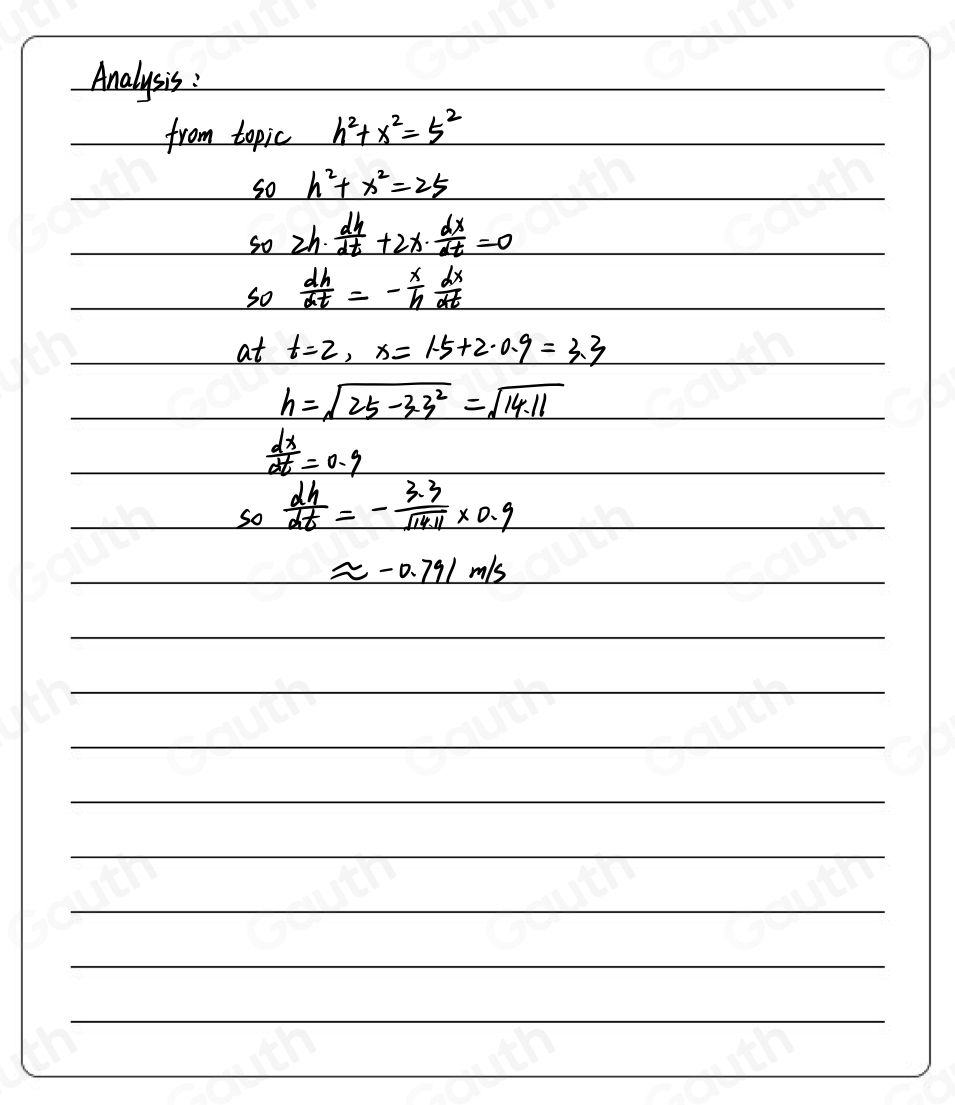 Analysis:
from topic h²+x²=5²
so h²+x²=25
so 2h·dh/dt+2x·dx/dt=0
so dh/dt=-x/h dx/dt
at t=2, x=1.5+2·0.9=3.3
h=√(25-3.3²)=√14.11
dx/dt=0.9
so dh/dt=-3.3/√14.11×0.9
≈-0.791 m/s